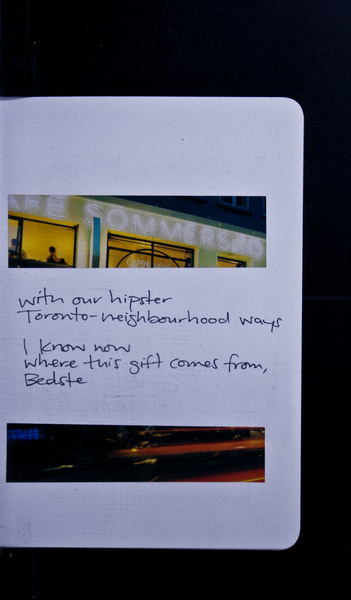 AFE SOMMERSKO
with our hipster
Toronto-neighbourhood ways
I know now
where this gift comes from,
Bedste